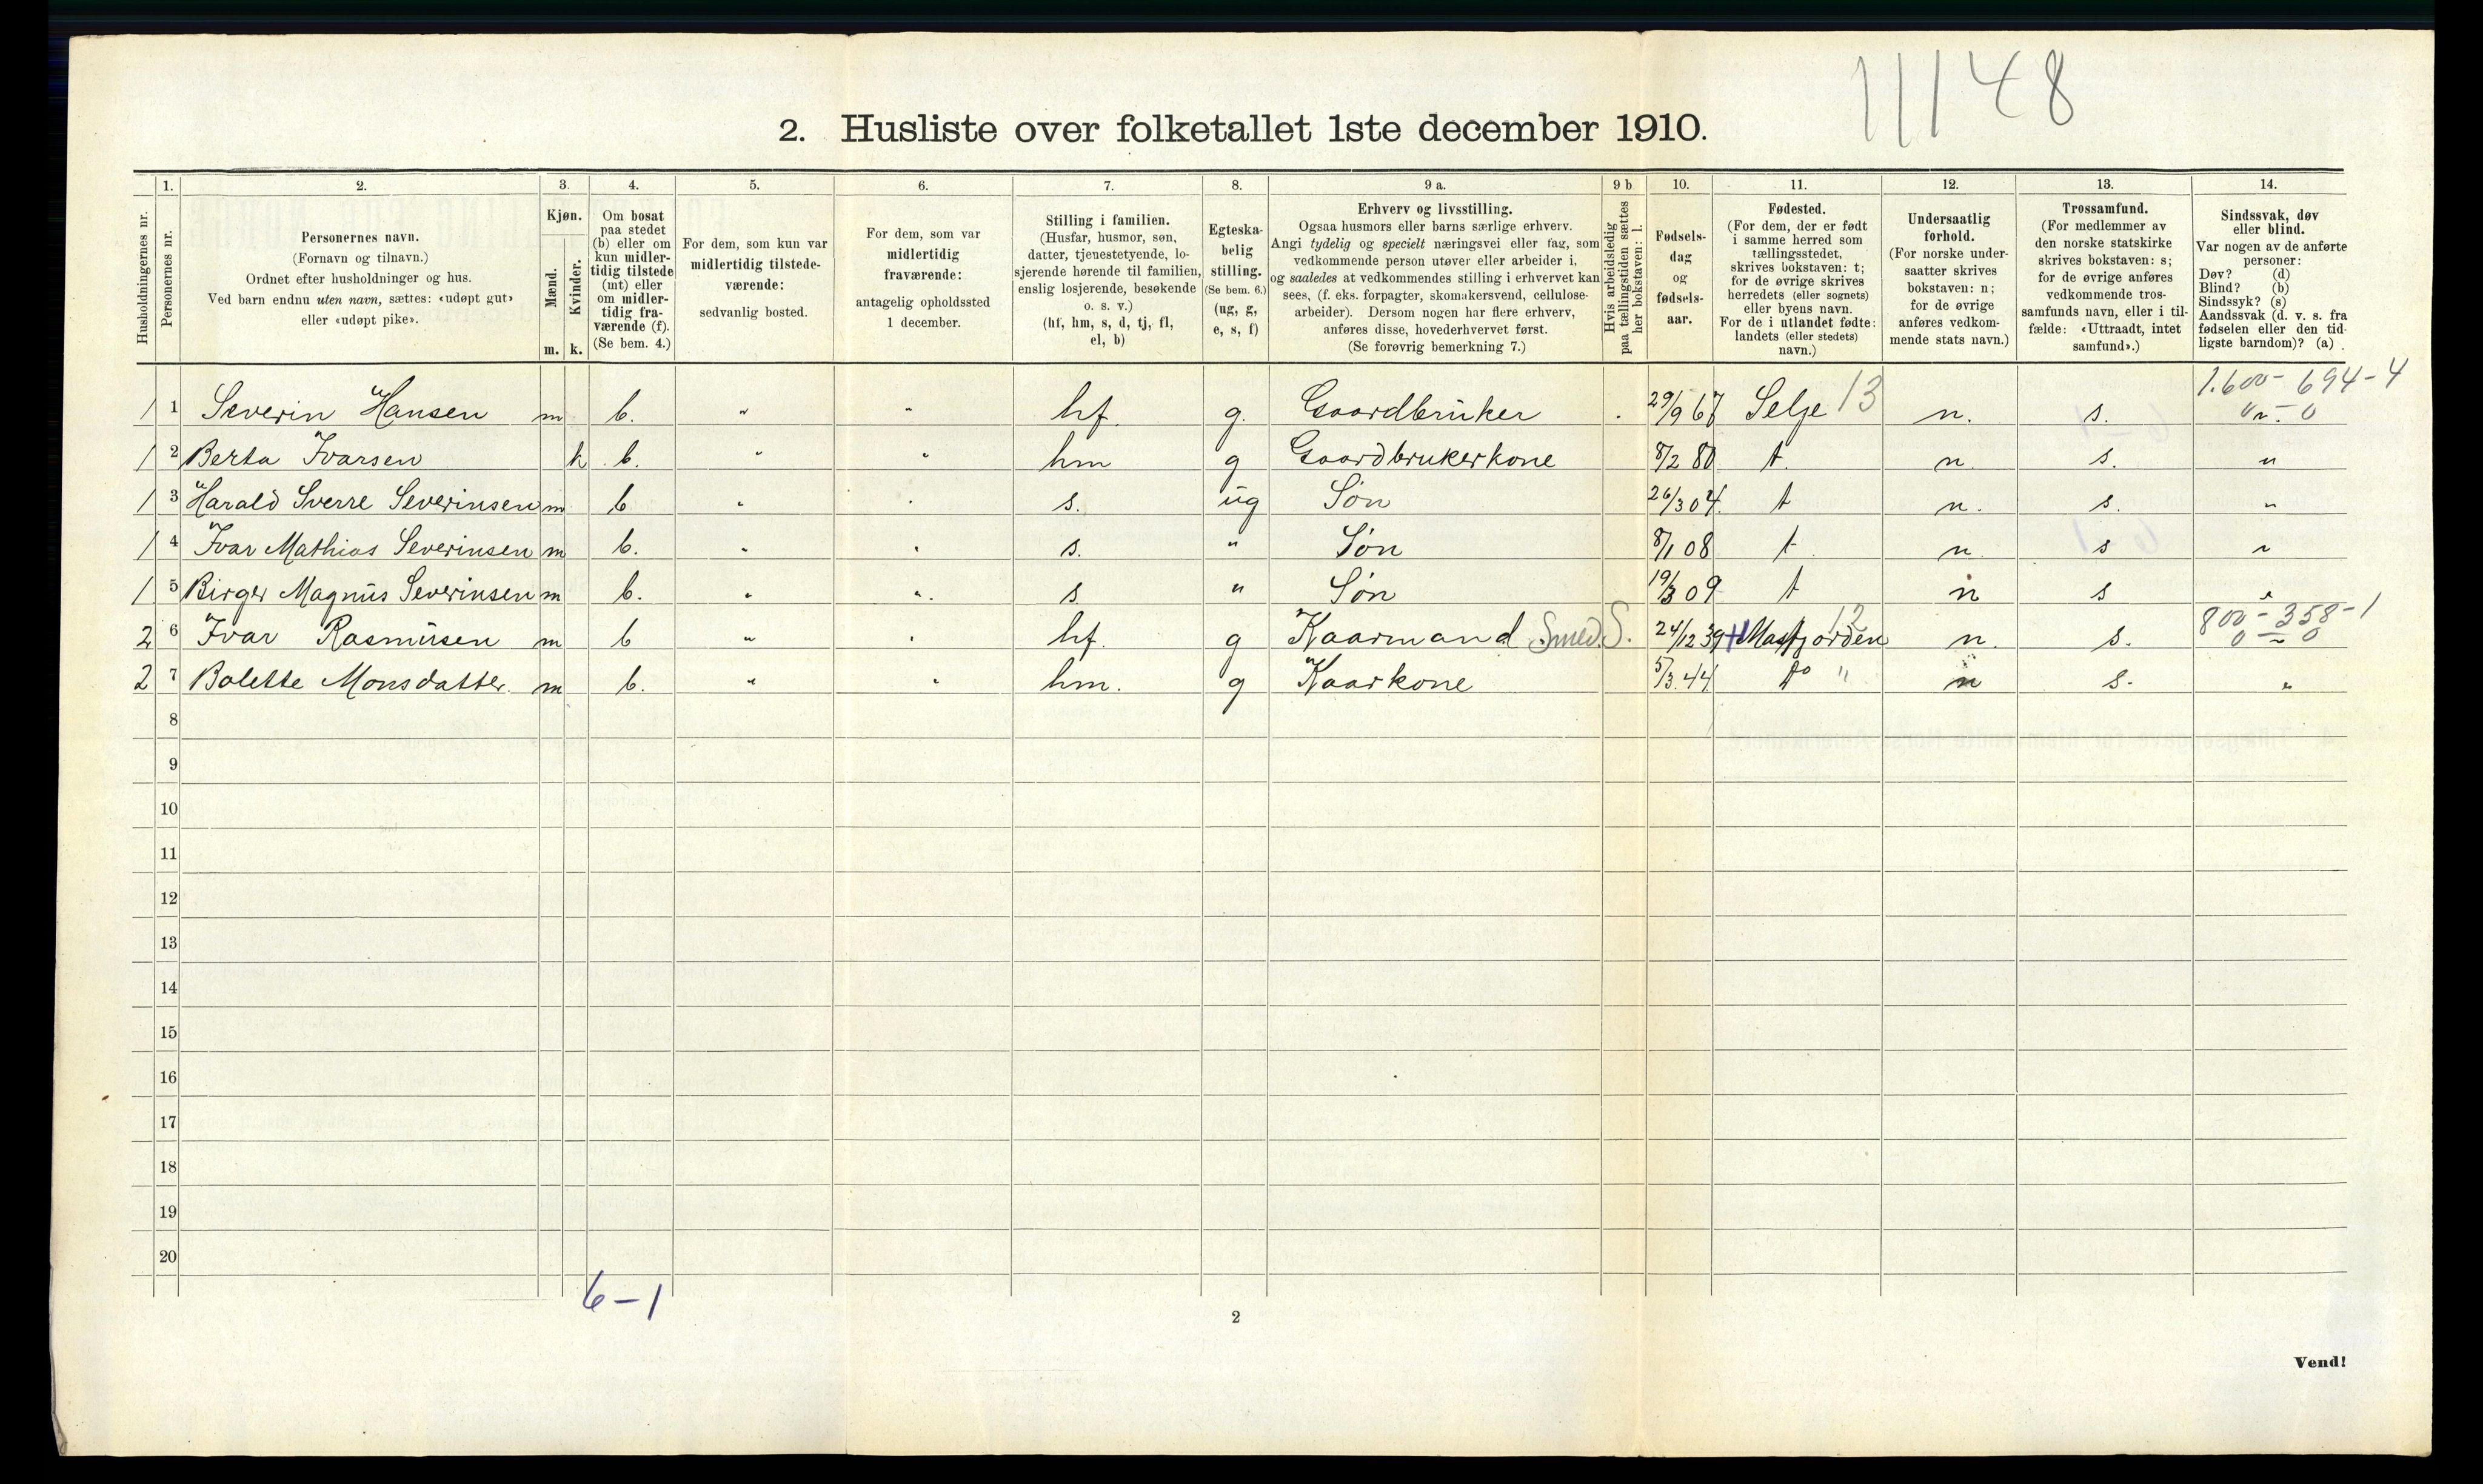 11148
2. Husliste over folketallet 1ste december 1910.
1. 2. 3. 4. 5. 6. 7. 8. 9 a. 9 b 10. 11. 12. 13. 14.
Husholdningernes nr.
Personernes nr.
Personernes navn.
(Fornavn og tilnavn.)
Ordnet efter husholdninger og hus.
Ved barn endnu uten navn, sættes: «udøpt gut»
eller «udøpt pike».
Kjøn.
Mænd.
Kvinder.
m. k.
Om bosat
paa stedet
(b) eller om
kun midler-
tidig tilstede
(mt) eller
om midler-
tidig fra-
værende (f).
(Se bem. 4.)
For dem, som kun var
midlertidig tilstede-
værende:
sedvanlig bosted.
For dem, som var
midlertidig
fraværende:
antagelig opholdssted
1 december.
Stilling i familien.
(Husfar, husmor, søn,
datter, tjenestetyende, lo-
sjerende hørende til familien,
enslig losjerende, besøkende
o. s. v.)
(hf, hm, s, d, tj, fl,
el, b)
Egteska-
belig
stilling.
(Se bem. 6.)
(ug, g,
e, s, f)
Erhverv og livsstilling.
Ogsaa husmors eller barns særlige erhverv.
Angi tydelig og specielt næringsvei eller fag, som
vedkommende person utøver eller arbeider i,
og saaledes at vedkommendes stilling i erhvervet kan
sees, (f. eks. forpagter, skomakersvend, cellulose-
arbeider). Dersom nogen har flere erhverv,
anføres disse, hovederhvervet først.
(Se forøvrig bemerkning 7.)
Hvis arbeidsledig
paa tællingstiden sættes
her bokstaven: l.
Fødsels-
dag
og
fødsels-
aar.
Fødested.
(For dem, der er født
i samme herred som
tællingsstedet,
skrives bokstaven: t;
for de øvrige skrives
herredets (eller sognets)
eller byens navn.
For de i utlandet fødte:
landets (eller stedets)
navn.)
Undersaatlig
forhold.
(For norske under-
saatter skrives
bokstaven: n;
for de øvrige
anføres vedkom-
mende stats navn.)
Trossamfund.
(For medlemmer av
den norske statskirke
skrives bokstaven: s;
for de øvrige anføres
vedkommende tros-
samfunds navn, eller i til-
fælde: «Uttraadt, intet
samfund».)
Sindssvak, døv
eller blind.
Var nogen av de anførte
personer:
Døv? (d)
Blind? (b)
Sindssyk? (s)
Aandssvak (d. v. s. fra
fødselen eller den tid-
ligste barndom)? (a)
1.600 - 694 - 4
1 1 Severin Hansen m b. " " hf. g. Gaardbruker 29/9 67 Selje 13 n. s. 0 " 0
1 2 Berta Ivarsen k b. " " hm g Gaardbrukerkone 8/2 80 t. n. s. "
1 3 Harald Sverre Severinsen m b " " s. ug Søn 26/3 04. t n. s. "
1 4 Ivar Mathias Severinsen m b. " " s. " Søn 8/1 08 t n s "
1 5 Birger Magnus Severinsen m b. " " s " Søn 19/3 09 t n s "
800 - 358 - 1
2 6 Ivar Rasmusen m b " " hf. g Kaarmand Smed. S. 24/12 39 Masfjorden 12 n. s. 0 " 0
2 7 Bolette Monsdatter. m b. " " hm. g Kaarkone 5/3 44 do " n s. "
8
9
10
11
12
13
14
15
16
17
18
19
20
6-1
2
Vend!